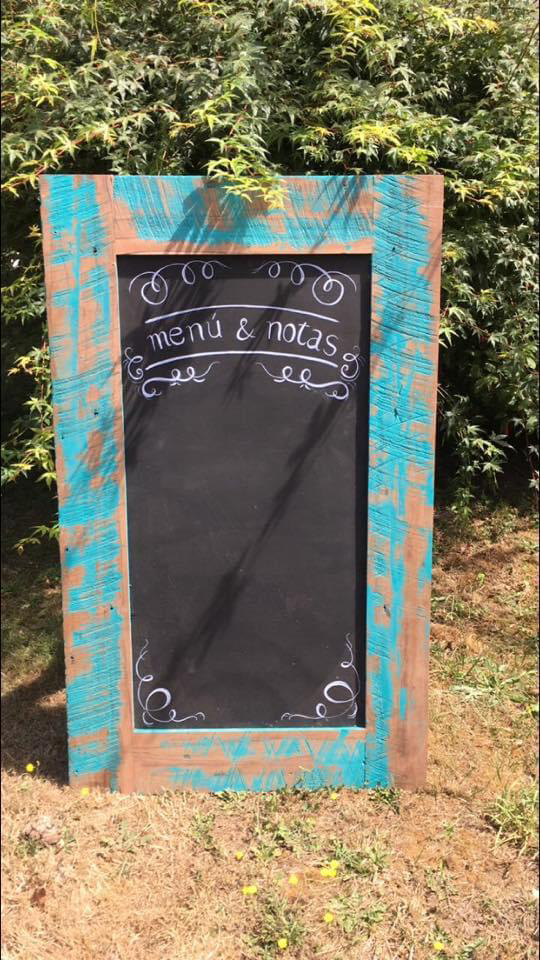 menú & notas